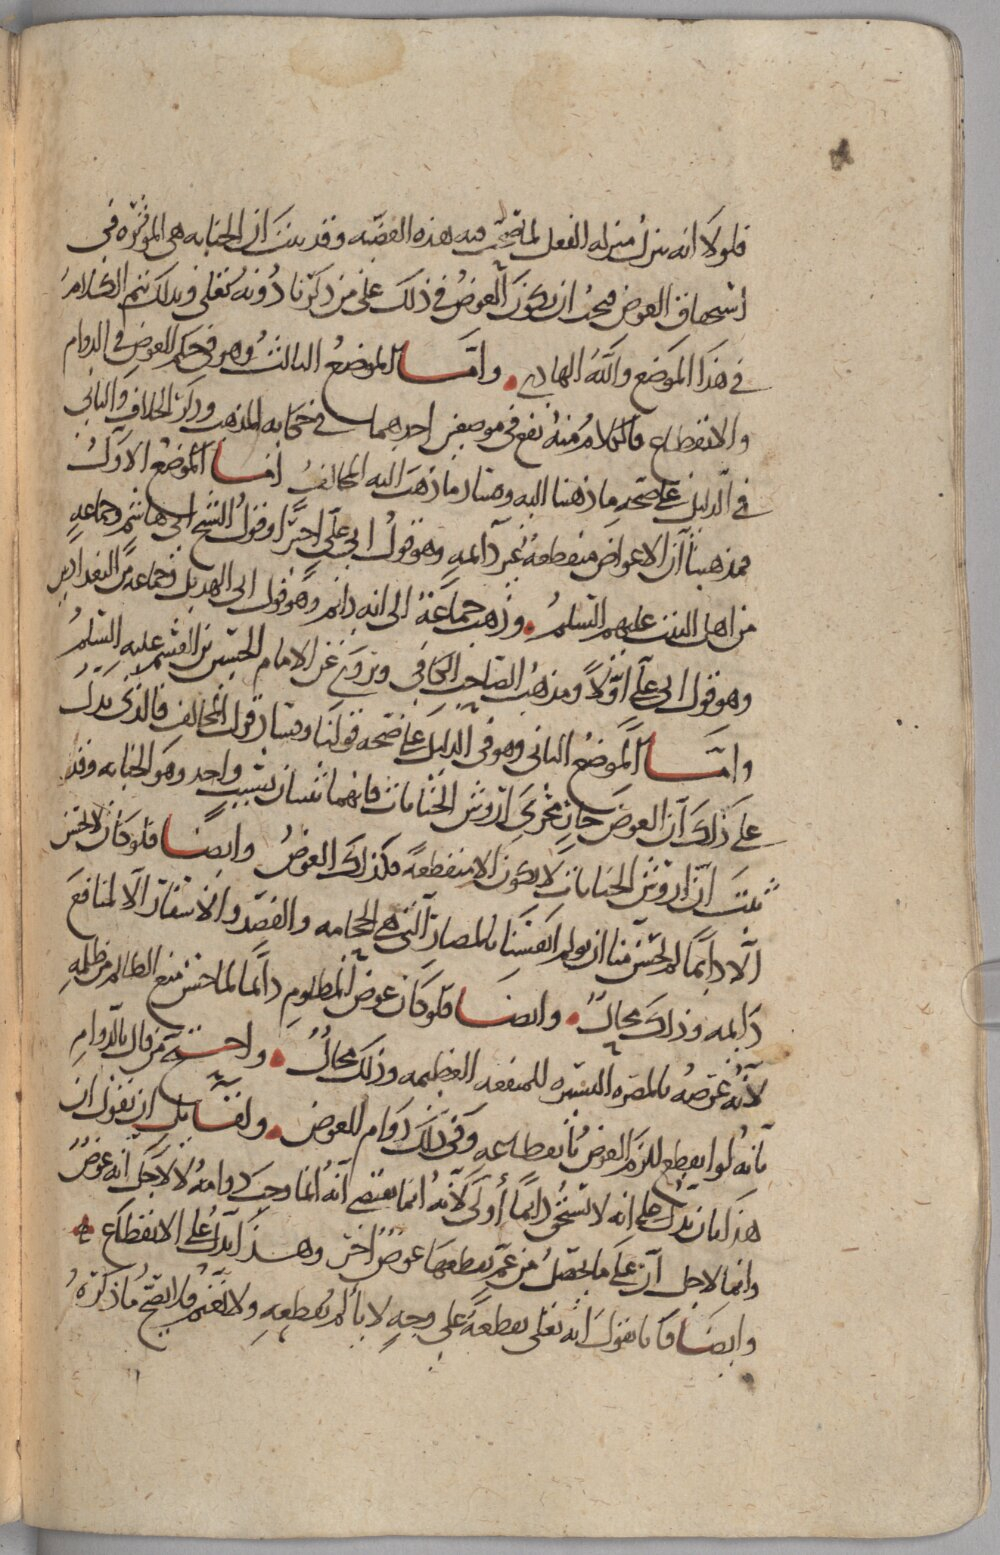 فلولا انه ينزل منزله الفعل لما قبحت فيه هذه القضيه وقد بينت ان الجنايه هي المؤثره في
استحقاق العوض فيجب ان يكون العوض في ذلك على من ذكرنا دونه تعلى وبذلك يتم الكلام
في هذا الموضع والله الهادي واما الموضع الثالث وهو في حكم العوض في الدوام
والانقطاع فالكلام منه يقع في موضعين احدهما في حكايه المذهب وذكر الخلاف والثاني
في الدليل على صحه ما ذهبنا اليه وفساد ما ذهب اليه المخالف اما الموضع الاول
فمذهبنا ان الاعواض منقطعه غير دايمه وهو قول ابي علي اخيرا وقول الشيخ ابي هاشم وجماعه
من اهل البيت عليهم السلم وذهب جماعة الى انه دايم وهو قول ابي الهذيل وجماعه من البغداديين
وهو قول ابي علي اولا ومذهب الصاحب الكافي ويروى عن الامام الحسين بن القسم عليه السلم
واما الموضع الثاني وهو في الدليل على صحه قولنا وفساد قول المخالف فالذي يدل
على ذلك ان العوض جار مجرى اروش الجنايات فانهما يثبتان بسبب واحد وهو الجنايه وقد
ثبت ان اروش الجنايات لا يكون الا منقطعه فكذلك العوض وايضا فلو كان لا يحسن
الا دايما لم يحسن منا ان نولم انفسنا بالمضار التي هي الحجامه والفصد والاسفار الا لمنافع
دايمه وذلك محال وايضا فلو كان عوض المظلوم دايما لما حسن منع الظالم من ظلمه
لانه عرضه بالمضره اليسيره للمنفعه العظيمه وذلك محال واحتج من قال بالدوام
بانه لو انقطع للزم العوض بانقطاعه وفي ذلك دوام للعوض ولقايل ان يقول ان
هذا بان يدل على انه لا يستحق دايما أولى لانه انما يقتضي انه انما وجب دوامه لا لاجل انه عوض
وانما لاجل ان على ما يحصل من غم بقطعها عوض اخر وهذا يدل على الانقطاع
وايضا فانا نقول انه تعلى يقطعه على وجه لا يألم بقطعه ولا يغتم فلا يصح ما ذكره